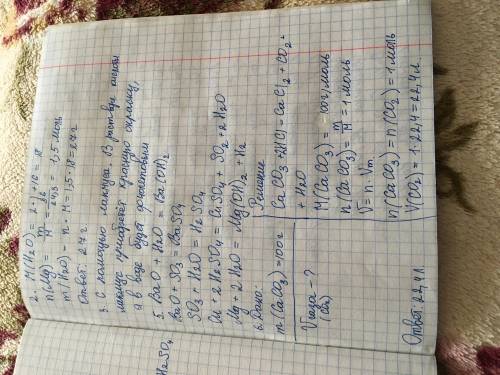 2. M(H₂O) = 2·1+16 = 18
n(Mg) = m/M = 36/24,3 = 1,5 моль
m(H₂O) = n·M = 1,5·18 = 27 г
Ответ: 27 г
3. С помощью лакмуса. В растворе кислоты
лакмус приобретёт красную окраску,
а в воде будет фиолетовым
5. BaO + H₂O = Ba(OH)₂
BaO + SO₃ = BaSO₄
SO₃ + H₂O = H₂SO₄
Cu + 2H₂SO₄ = CuSO₄ + SO₂ + 2H₂O
Mg + 2H₂O = Mg(OH)₂ + H₂
6. Дано:
n(CaCO₃) = 100г
Vгаза - ?
(CO₂)
Решение
CaCO₃ + 2HCl = CaCl₂ + CO₂ +
+ H₂O
M(CaCO₃) = 100г/моль
n(CaCO₃) = m/M = 1 моль
V = n · Vm
n(CaCO₃) = n(CO₂) = 1 моль
V(CO₂) = 1·22,4 = 22,4 л.
Ответ: 22,4 л
H₂SO₄